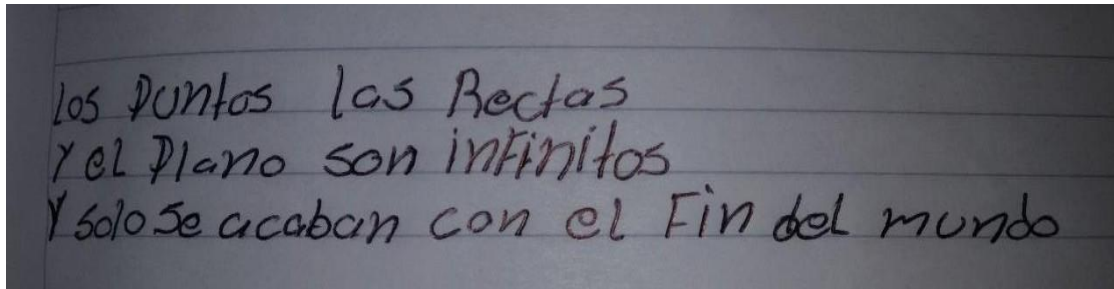 los puntos las Rectas
y el Plano son infinitos
y solo se acaban con el Fin del mundo